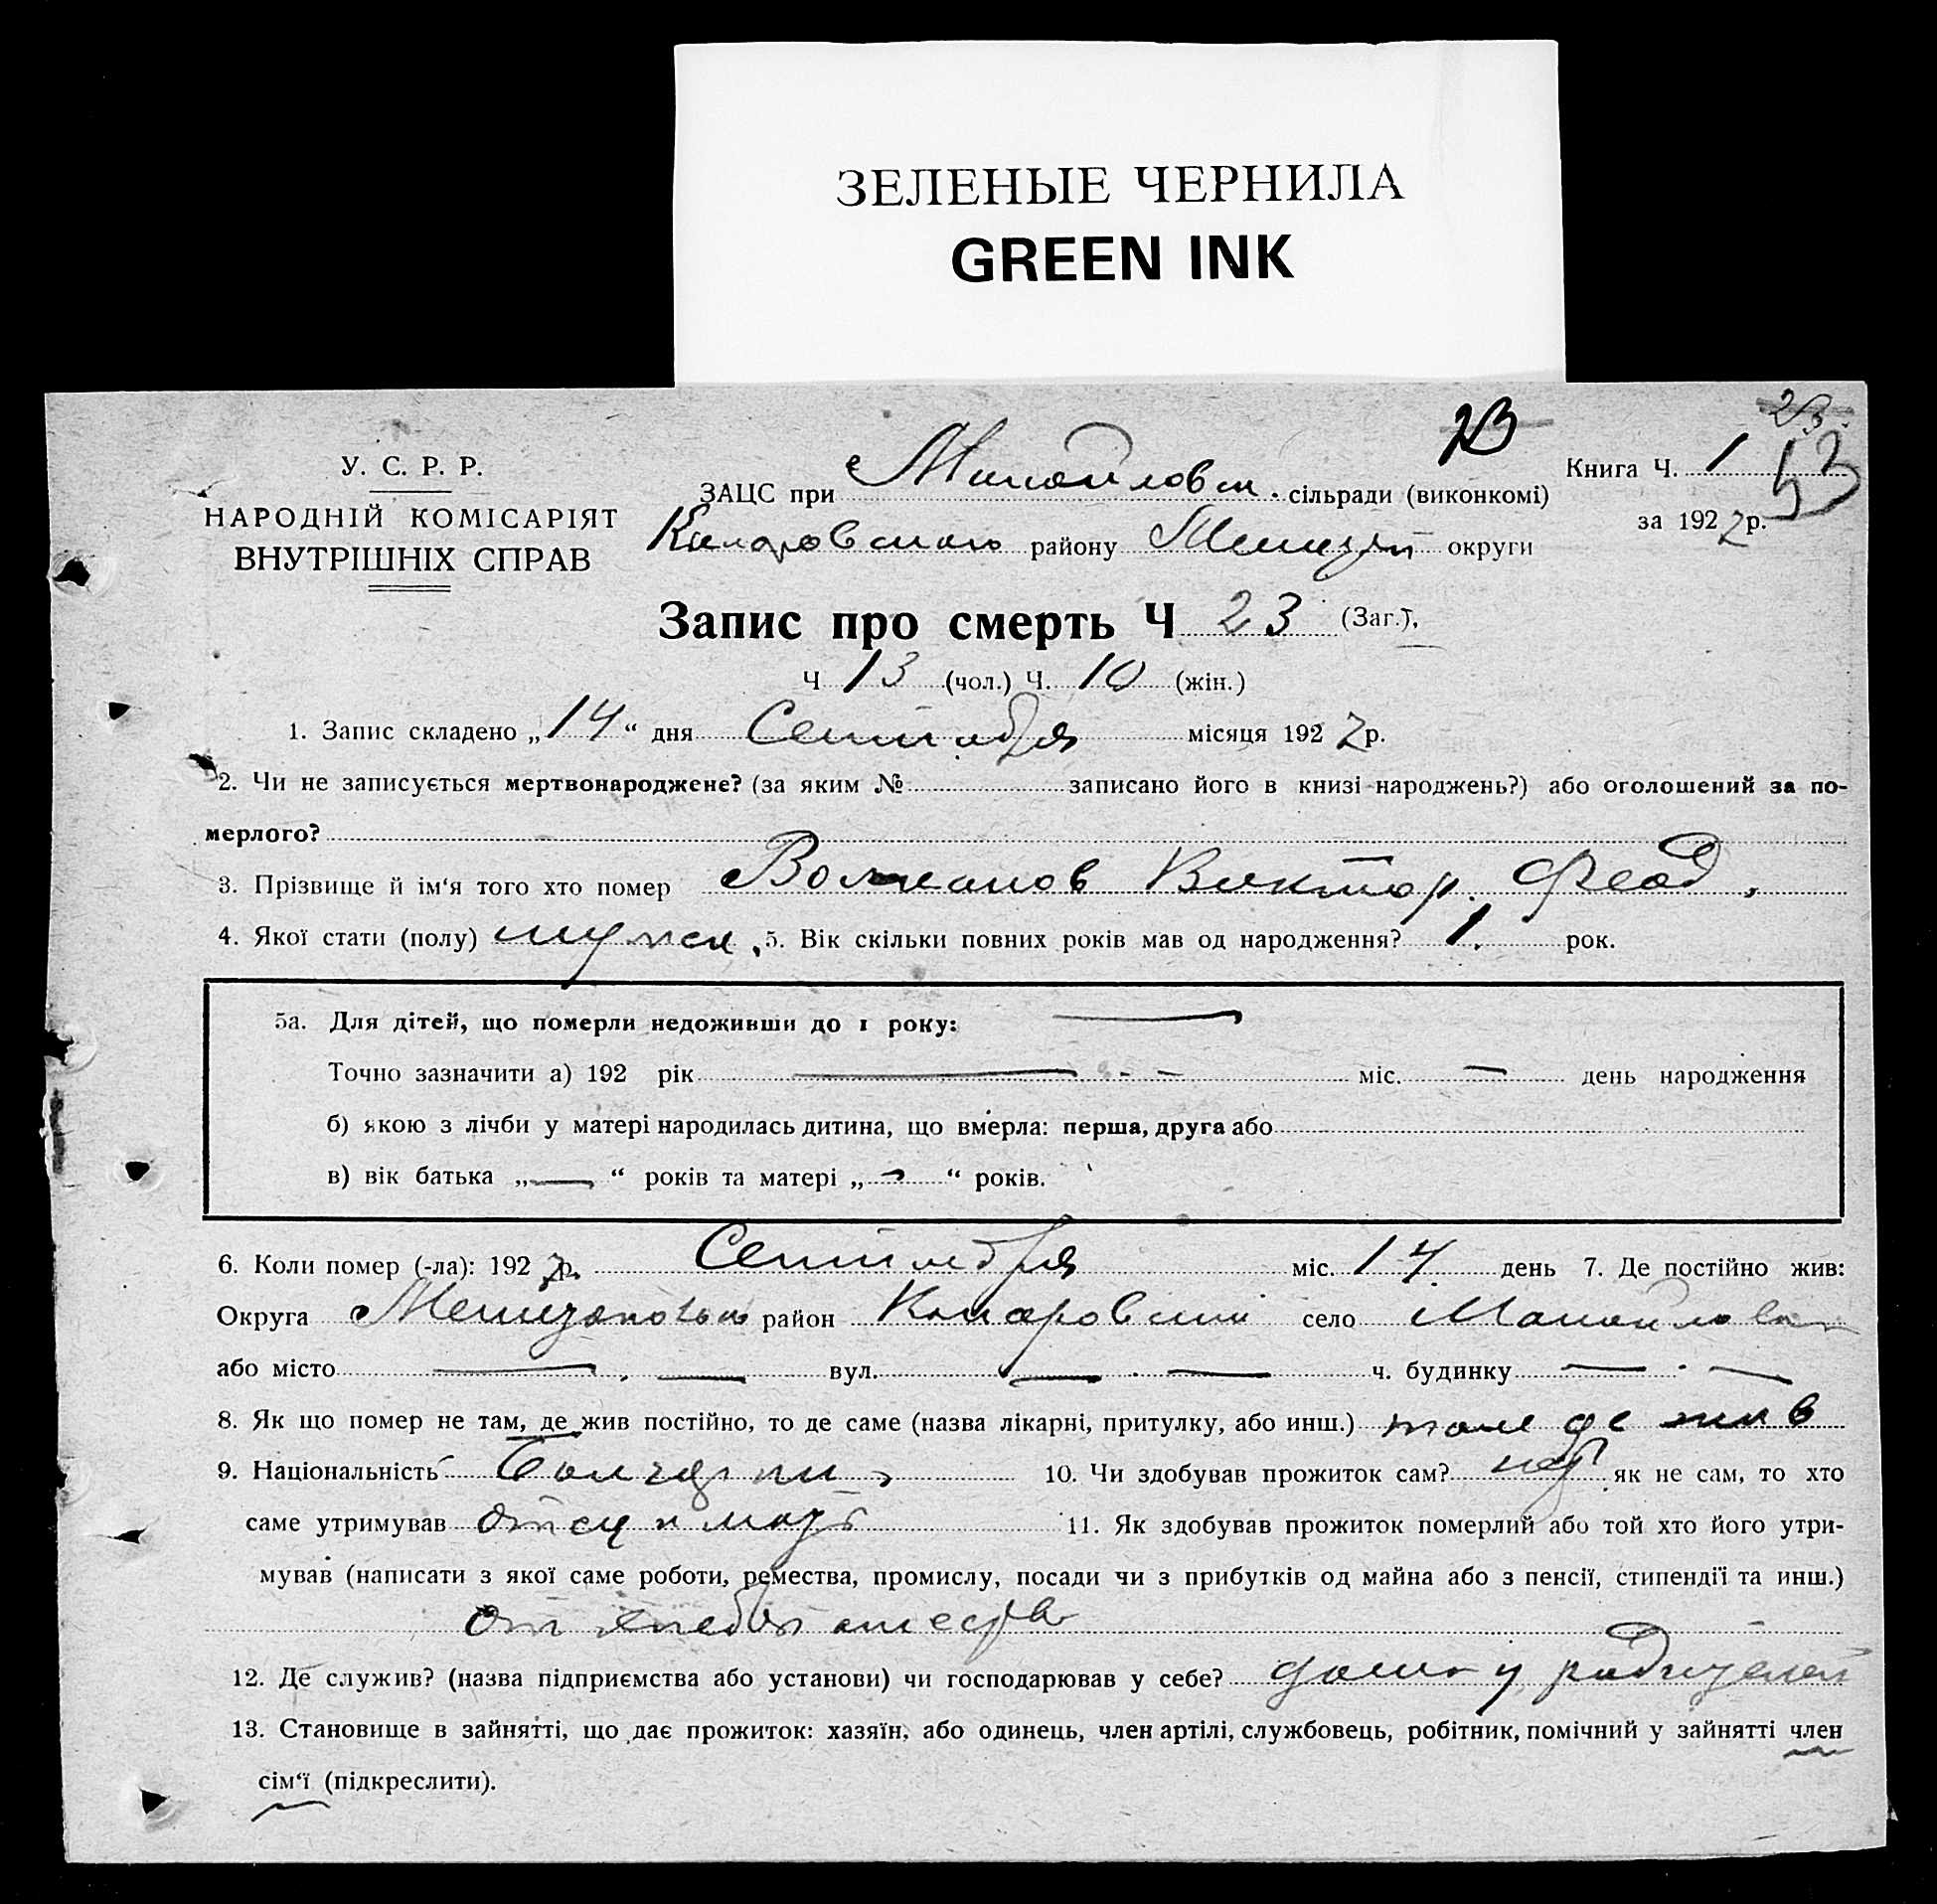 ЗЕЛЕНЫЕ ЧЕРНИЛА
GREEN INK
23
23
53
У. С. Р. Р.
НАРОДНІЙ КОМІСАРІЯТ
ВНУТРІШНІХ СПРАВ
Книга Ч. 1
за 1927 р.
ЗАЦС при сільради (виконкомі)
району округи
Запис про смерть Ч 23 (Заг.),
Ч 13 (чол.) Ч. 10 (жін.)
1. Запис складено „14“ дня Сентября місяця 1927 р.
2. Чи не записується мертвонароджене? (за яким № записано його в книзі народжень?) або оголошений за по-
мерлого?
3. Прізвище й ім‘я того хто помер Виктор Феод.
4. Якої стати (полу) 5. Вік скільки повних років мав од народження? 1. рок.
5а. Для дітей, що померли недоживши до 1 року: —
Точно зазначити а) 192 рік — міс. — день народження
б) якою з лічби у матері народилась дитина, що вмерла: перша, друга або
в) вік батька „—“ років та матері „—“ років.
6. Коли помер (-ла): 1927 р. Сентября міс. 14 день 7. Де постійно жив:
Округа район село
або місто — — вул. — — ч. будинку — —
8. Як що помер не там, де жив постійно, то де саме (назва лікарні, притулку, або инш.) там де жив
9. Національність 10. Чи здобував прожиток сам? як не сам, то хто
саме утримував отец и мать 11. Як здобував прожиток померлий або той хто його утри-
мував (написати з якої саме роботи, ремества, промислу, посади чи з прибутків од майна або з пенсії, стипендії та инш.)
от
12. Де служив? (назва підприємства або установи) чи господарював у себе? дома у родителей
13. Становище в зайнятті, що дає прожиток: хазяїн, або одинець, член артілі, службовець, робітник, помічний у зайнятті член
сім‘ї (підкреслити).